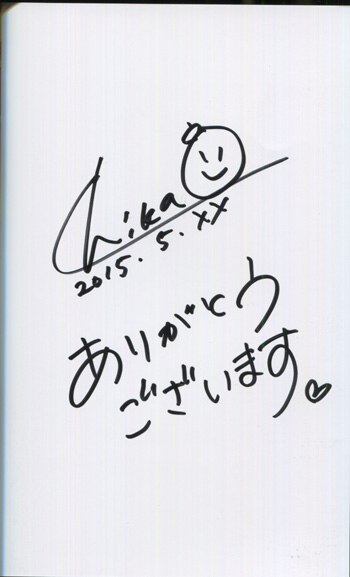 Chika
2015.5.XX
ありがとう
ございます♡